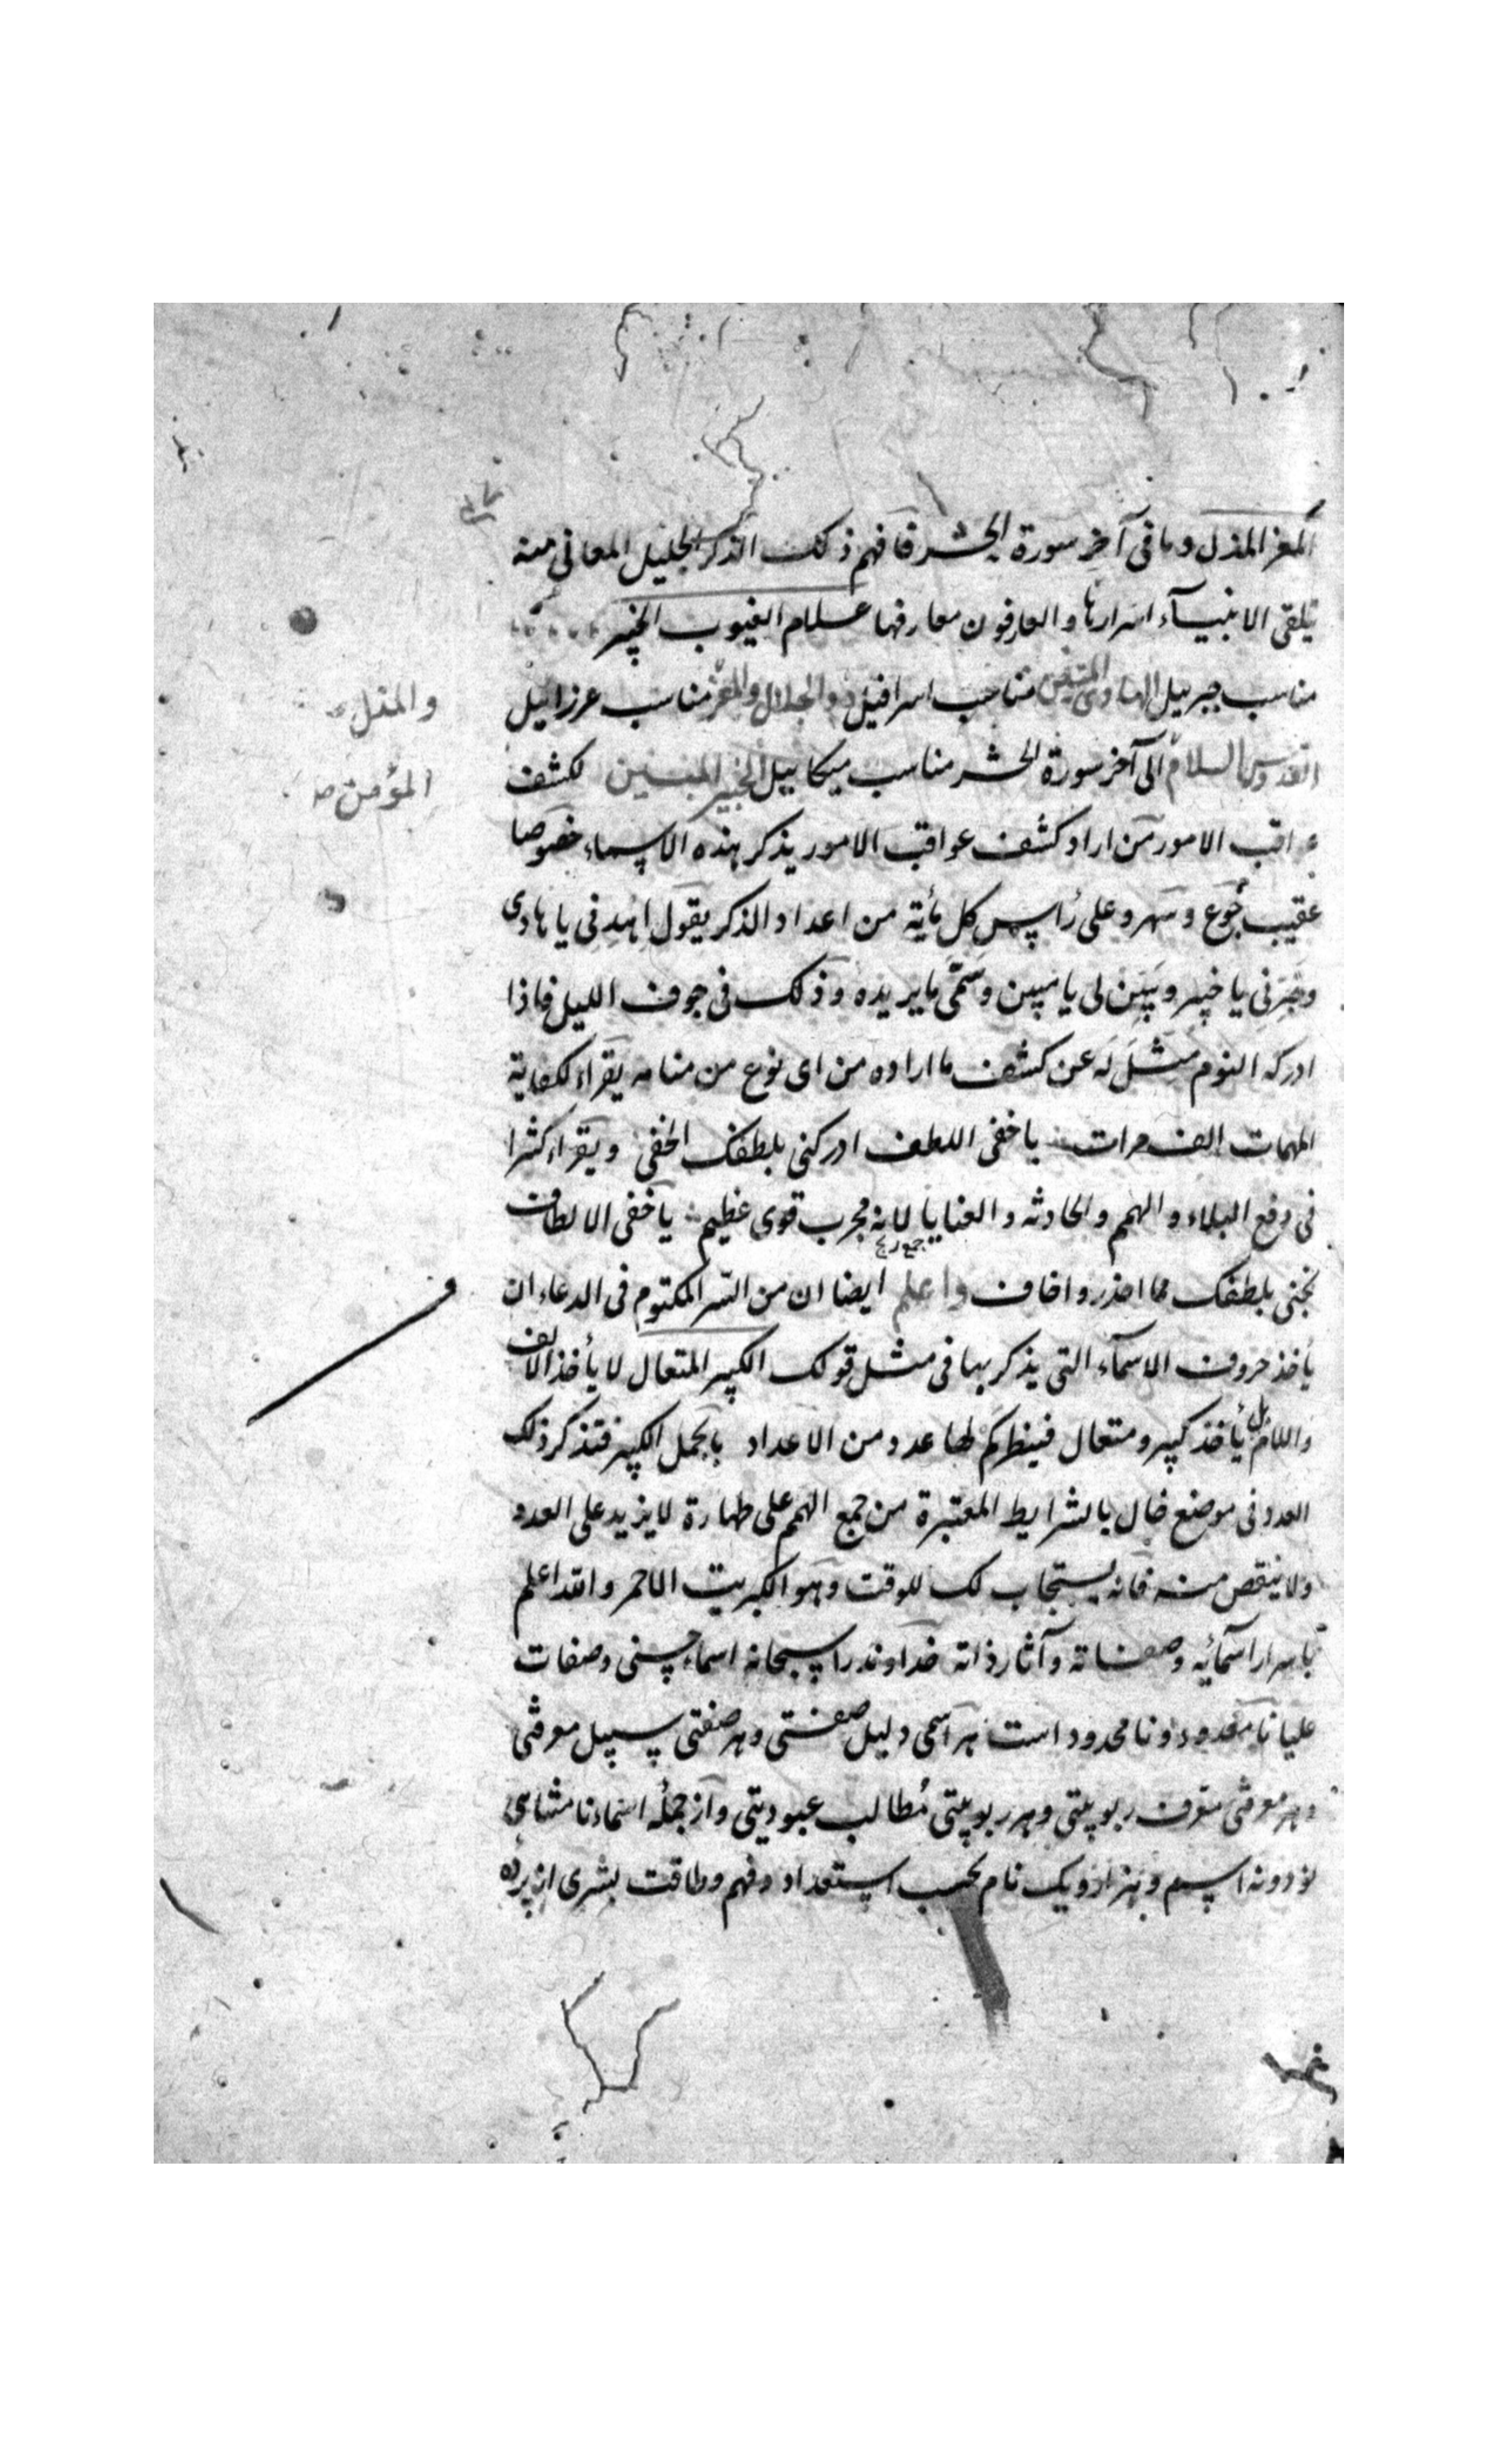 المعز المذل وما فى آخر سورة الحشر فافهم ذلك الذكر الجليل المعانى منه
تلقى الانبيآء اسرارها والعارفون معارفها علام الغيوب الخبير
مناسب جبرييل الهادى المبين مناسب اسرافيل ذو الجلال والمعز مناسب عزرائيل
والمذل
القدوس السلام الى آخر سورة الحشر مناسب ميكاييل الخبير المبين لكشف
المؤمن صح
عواقب الامور من اراد كشف عواقب الامور يذكر بهذه الاسماء خصوصا
عقيب جوع وسهر وعلى رأس كل مأية من اعداد الذكر يقول اهدنى يا هادى
وخبرنى يا خبير وبين لى يا مبين وسمى ما يريده وذلك فى جوف الليل فاذا
ادركه النوم مثل له عن كشف ما اراده من اى نوع من منامه يقراء لكفاية
المهمات الف مرات يا خفى اللطف ادركنى بلطفك الخفى ويقراء كثيرا
فى دفع البلاء والهم والحادثه والعنايا لانه مجرب قوى عظيم يا خفى الالطاف
نجنى بلطفك مما احذر واخاف واعلم ايضا ان من السر المكتوم فى الدعاء ان
يأخذ حروف الاسمآء التى يذكر بها فى مثل قولك الكبير المتعال لا يأخذ الالف
واللام بل يأخذ كبير ومتعال فينظر كم لها عدد من الاعداد بالجمل الكبير فتذكر ذلك
العدد فى موضع خال بالشرايط المعتبرة من جمع الهمم على طهارة لا يزيد على العدد
ولا ينقص منه فانه يستجاب لك للوقت وهو الكبريت الاحمر والله اعلم
باسرار اسمائه وصفاته وآثار ذاته خداوند را سبحانه اسماء حسنى وصفات
عليا نا معدود ونا محدود است هر اسمى دليل صفتى وهر صفتى سبيل معرفتى
وهر معرفتى معرف ربوبيتى وهر ربوبيتى مطالب عبوديتى واز جمله اسماء نا متناهى
نود ونه اسم وهزار ويك نام بحسب استعداد وفهم وطاقت بشرى از پرده